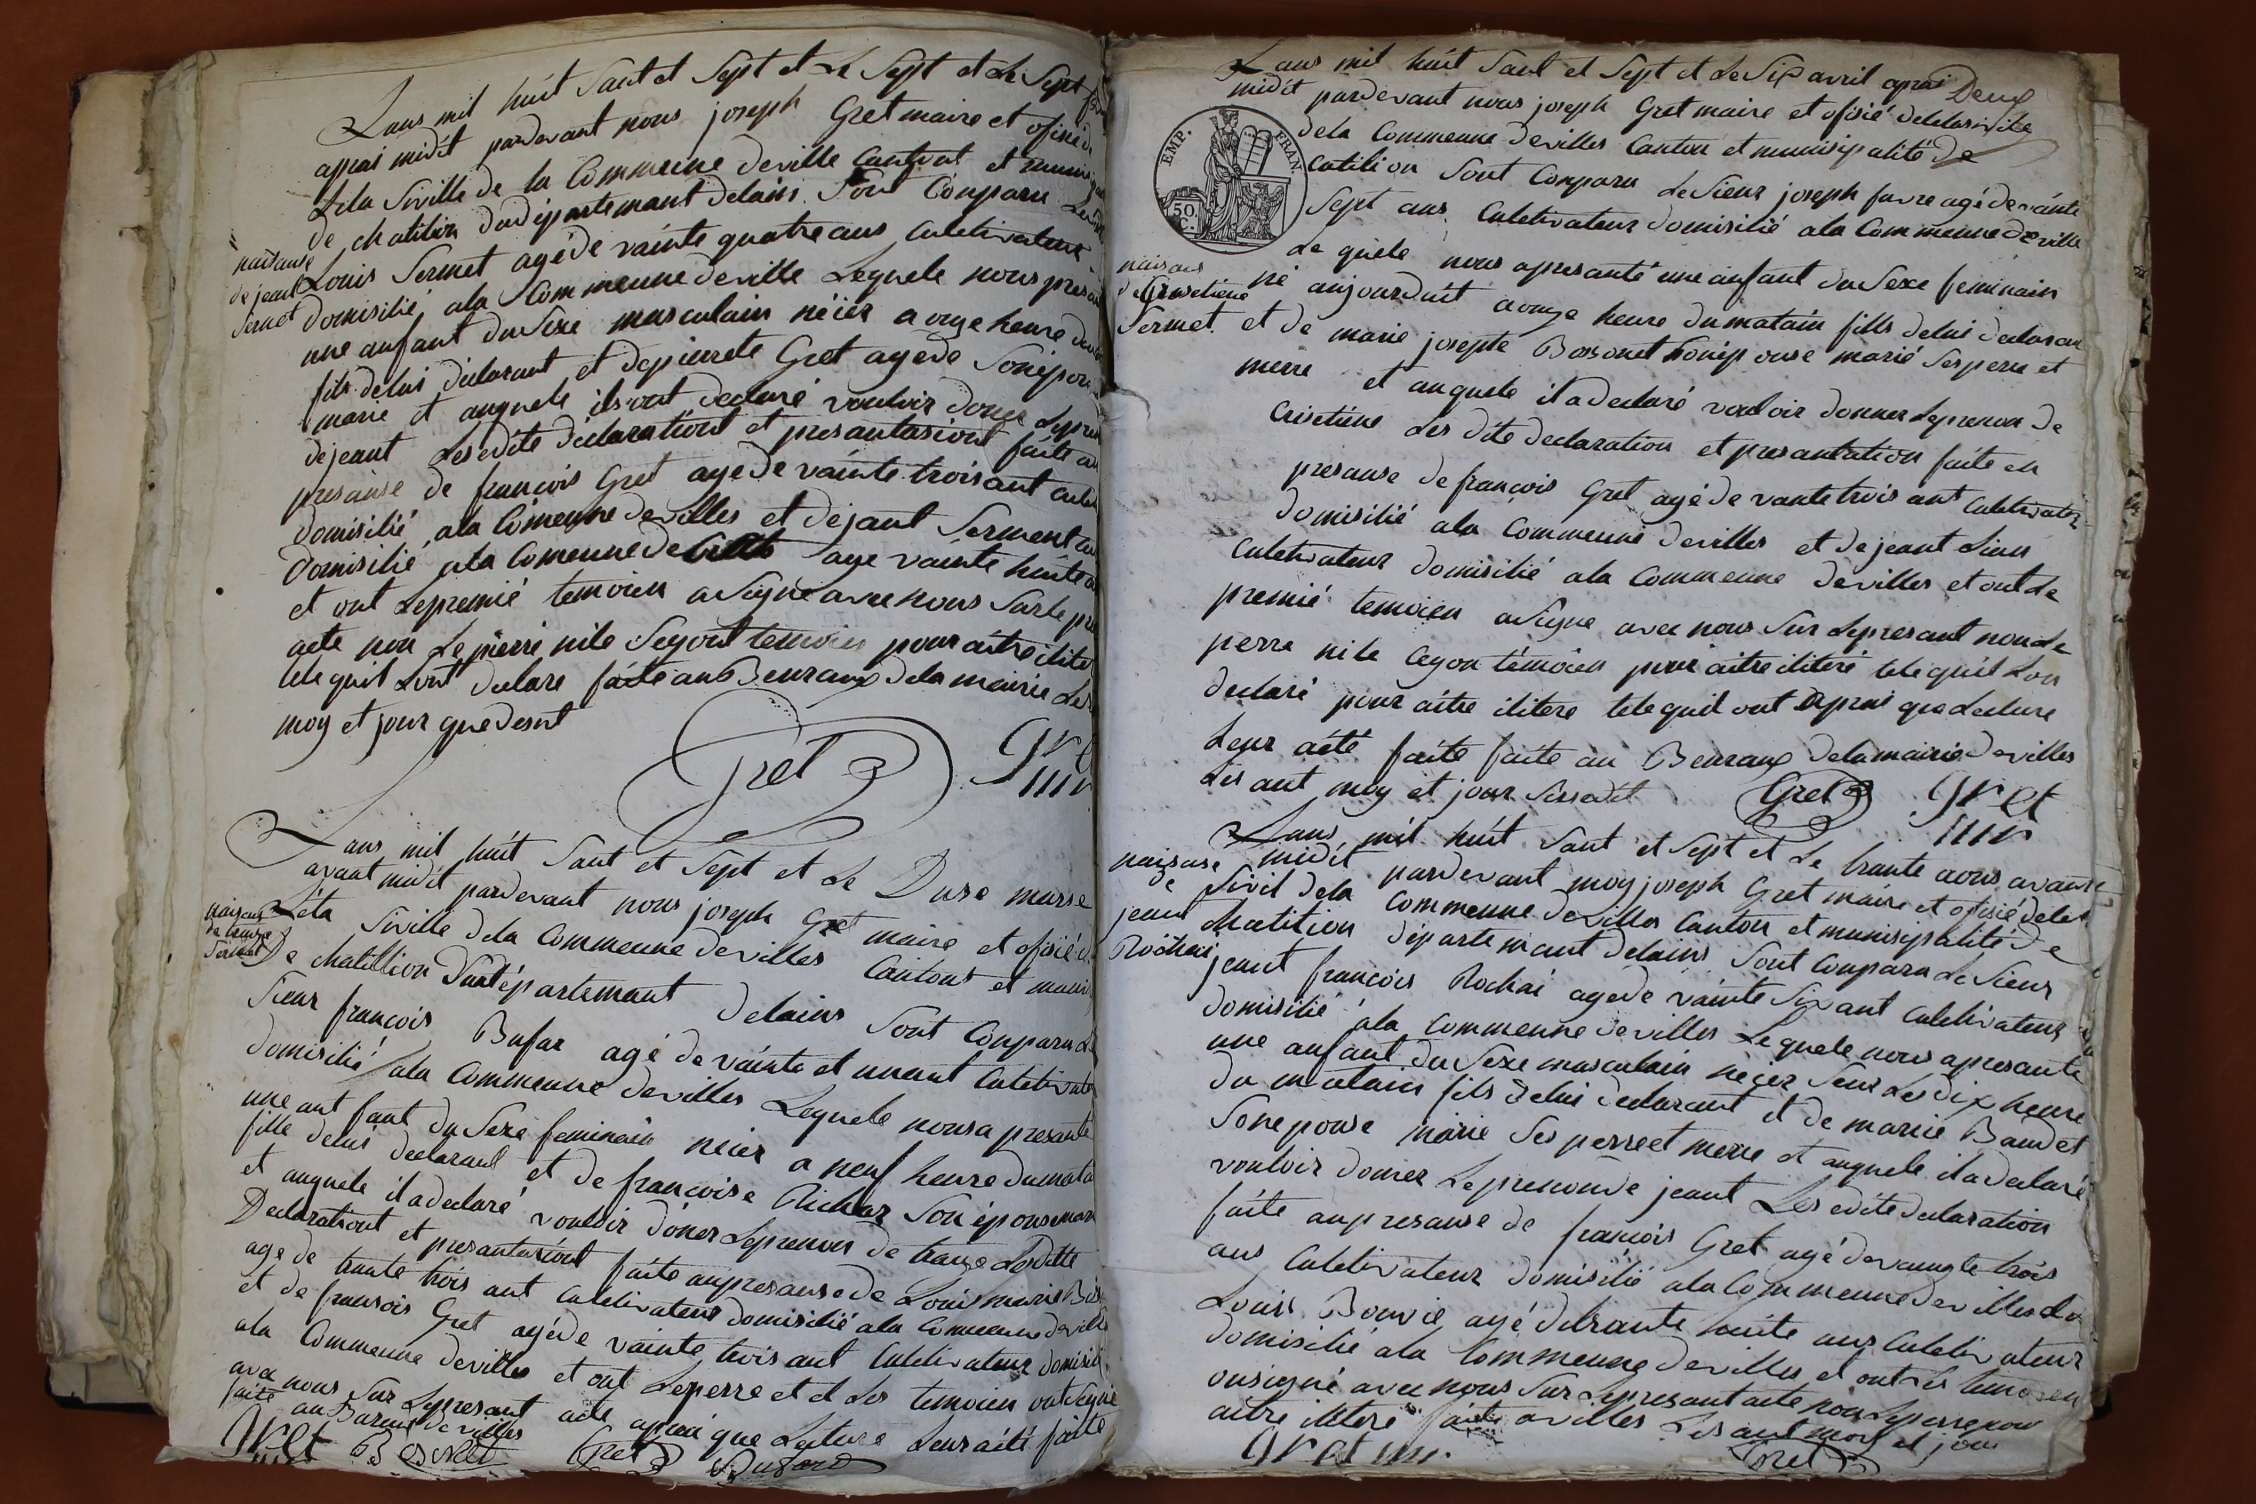 Lans mil huit Sant et Sept et Le Sept et Le Sept
apprai midit pardevant nous joseph Gret maire et ofisié d
Lela Siville de la Commeune deville Canton et muni
de chatilion dudépartemant delains Sont Conparu Le
naisanse
de jeant
Sermet
Louis Sermet agé de vainte quatre ans Culetivateur
domisilié ala Commeune deville Lequele nous pres
une anfant du Sexe masculain néier a onze heure
fils delui declarant et depierrete Gret agé de Son épou
marie et auquele ils ont declaré vouloir doner Le pre
dejeant Lesdite declarationt et presantasiont faite
presanse de francois Gret agé de vainte troisant
domisilié ala Comeune devilles et dejeant Serment
domisilié ala Comeune de age vainte huite
et ont Le premié temoien a Signe avec nous Sur le
acte non Le pierre nile Segont temoien pour aitre ilite
tele quil Lont declare faite au Beuraux dela mairie Les
moy et jour que desut
Gret Gret
Lans mil huit Sant et Sept et Le Duse marse
avant midit pardevant nous joseph Gret maire et ofisié
Léta Siville dela Commeune devilles Cantont et muni
naisans
de
Sermet
De chatillion Dudépartemant delains Sont Conparu
Sieur francois Bufar agé de vainte et unant Culetivate
domisilié ala Commeune devilles Lequele nous a presanté
une ant fant du Sexe feminain néier a neuf heure dumata
fille delui declarant et de francoise Richar Son épouse
et auquele il a declaré vouloir doner Leprenon de Les ditte
Declarationt et presantasiont faite anpresanse de Louis marie
age de trante trois ant Culetivateur domisilié ala Commeune deville
et de fransois Gret agé de vainte trois ant Culetivateur domisili
ala Commeune devilles et ont Leperre et Les temoien ont Signé
avec nous Sur Lepresant acte aprai que Leture Leur aité faite
faite au Bureau devilles
Gret Gret
Lans mil huit Sant et Sept et Le Six avril aprai Deux
midit pardevant nous joseph Gret maire et ofisié
EMP. FRAN.
50.
C.
dela Commeune devilles Canton et munisipalité de
Catilion Sont Conparu Le Sieur joseph favre agé de vainte
Sept ans Culetivateur domisilié ala Commeune deville
Le quele nous apresanté une anfant du Sexe feminain
naisans
Sermet
né aujourduit aonze heure dumatain fills delui declaran
et de marie josepte Bossonet Son épouse marié Ses perre et
merre et auquele il a declaré vouloir donner Leprenon de
Cristiene Les dite declaration et presantation faite en
presanse de francois Gret agé de vante trois ant Culetivater
domisilié ala Commeune devilles et dejeant
Culetivateur domisilié ala Commeune devilles et ont Le
premié temoien a Signe avec nous Sur Lepresant non Le
perre nile Cegon temoien pour aitre iliteré tele quil Lon
declaré pour aitre ilitere tele quil ont aprai que Lecture
Leur aité faite faite au Beuraux dela mairie devilles
Les ant moy et jour Susdit
Gret Gret
Lans mil huit Sant et Sept et Le trante aous avant
naisanse
de
jeant
Rochai
midit pardevant moy joseph Gret maire et ofisié delet
Sivil dela Commeune devilles Canton et munisipalité de
Chatilion départemant delains Sont Conparu Le Sieur
jeant francois Rochai agé de vainte Six ant Culetivateur
domisilié ala Commeune devilles Lequele nous apresanté
une anfant du Sexe masculain néier Sur Les dix heure
du matain fils delui declarant et de marie Baudet
Son epouse marie Ses perre et merre et auquele il a declaré
vouloir doner Leprenon de jeant Les dite declaration
faite anpresanse de francois Gret agé devante trois
ans Culetivateur domisilié ala Commeune devilles et
Louis Bouvie agé detrante huite ans Culetivateur
domisilié ala Commeune devilles et ont Les temoien
onsigné avec nous Sur Lepresant acte non Leperre pour
aitre iliteré faite avilles Les ant moy et jour
Gret Gret